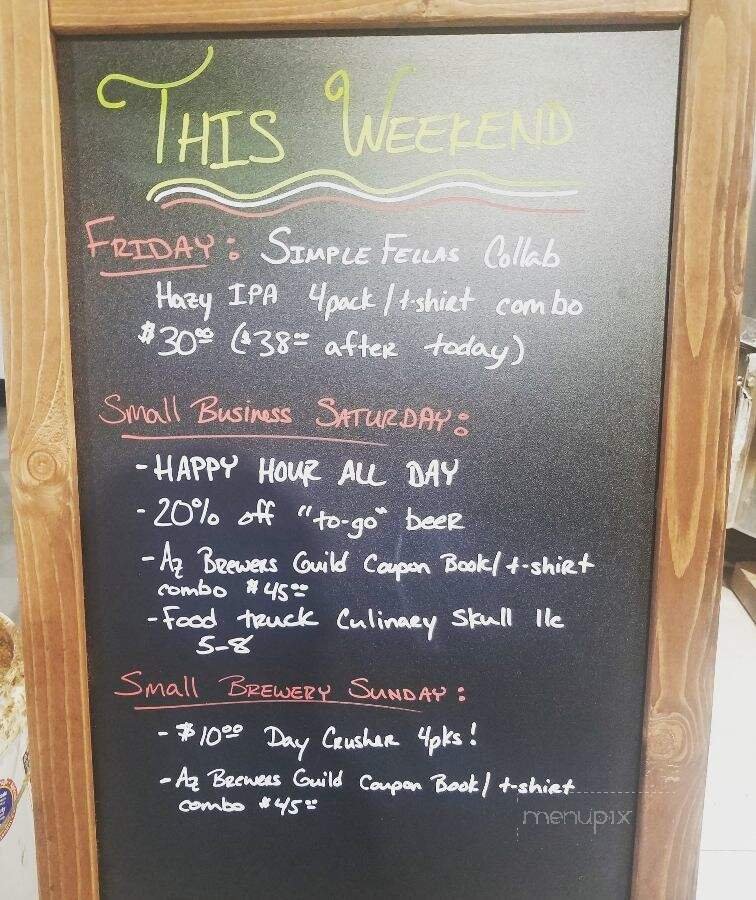 THIS WEEKEND
FRIDAY: SIMPLE FELLAS Collab
Hazy IPA 4pack/t-shirt combo
$30⁰⁰ ($38⁰⁰ after today)
Small Business SATURDAY:
-HAPPY HOUR ALL DAY
-20% off "to-go" beer
-Az Brewers Guild Coupon Book/t-shirt
combo $45⁰⁰
-Food truck Culinary Skull llc
5-8
SMALL BREWERY SUNDAY:
-$10⁰⁰ Day Crusher 4pks!
-Az Brewers Guild Coupon Book/t-shirt
combo $45⁰⁰
menupix